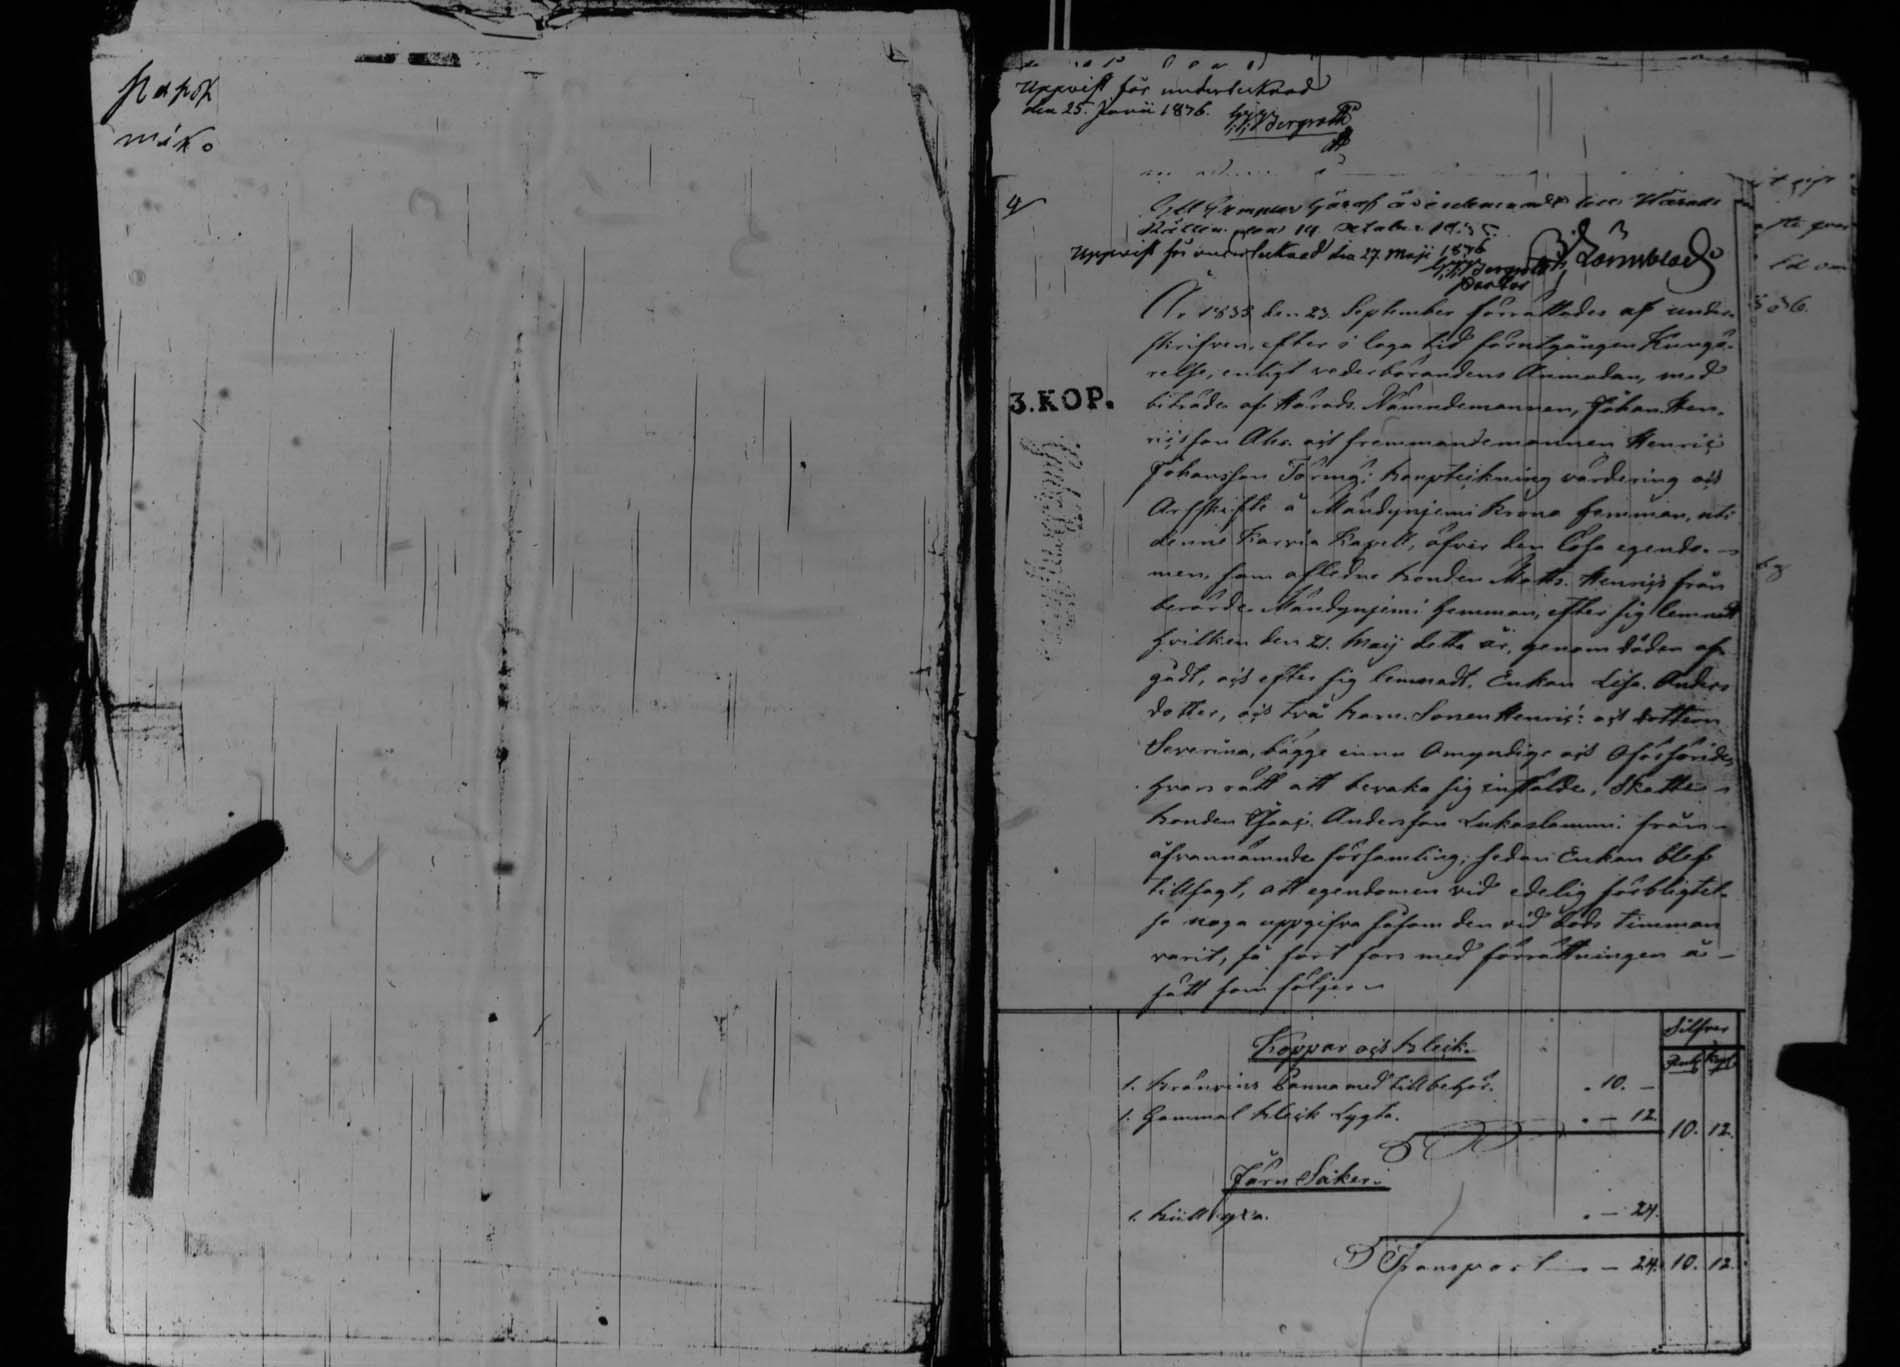 Uppvist för undertecknad
den 25. Junii 1876.
Bergroth
4
Ett Exemplar häraf
October 1835.
Uppvist för undertecknad den 27 Maji 1876
Bergroth
Pastor
Lönnblad
År 1835 den 23 September förrättades af under-
skrifven, efter i laga tid förutgången Kungö-
relse, enligt vederbörandens Anmodan, med
biträde af Härads Nämndemannen, Johan Hen-
ricsson Ala. och fremmandemannen Henric
Johansson boupteckning värdering och
Arfskifte å Mändynjemi Krono hemman, uti
denne Karvia Kapell, öfver den lösa egendo-
men, som afledne bonden Matts Henrics från
berörde Mändynjemi hemman, efter sig lemnat
hvilken den 21. Maij detta år, genom döden af-
gådt, och efter sig lemnadt, Enkan Lisa Anders
dotter, och två barn. Sonen Henric och dottern
Severina, bägge ännu Omyndige och Oförsörjde,
hvars rätt att bevaka sig instälde, Skatte-
bonden Isaac Andersson Lukaslammi från
ofvannämnde församling; sedan Enkan blef
tillsagt, att egendomen vid edelig förbligtel-
se noga uppgifva såsom den vid döds timman
varit, så fort fors med förrättningen å
sätt som följer
3.KOP.
Silfver
Rub Kop
Koppar och Bleck.
1. Bränvins Panna med tillbehör. 10. –
1. Gammal bleck Lygta. – 12 10. 12.
Järn Saker.
1. – 24.
Transport – 24. 10. 12.